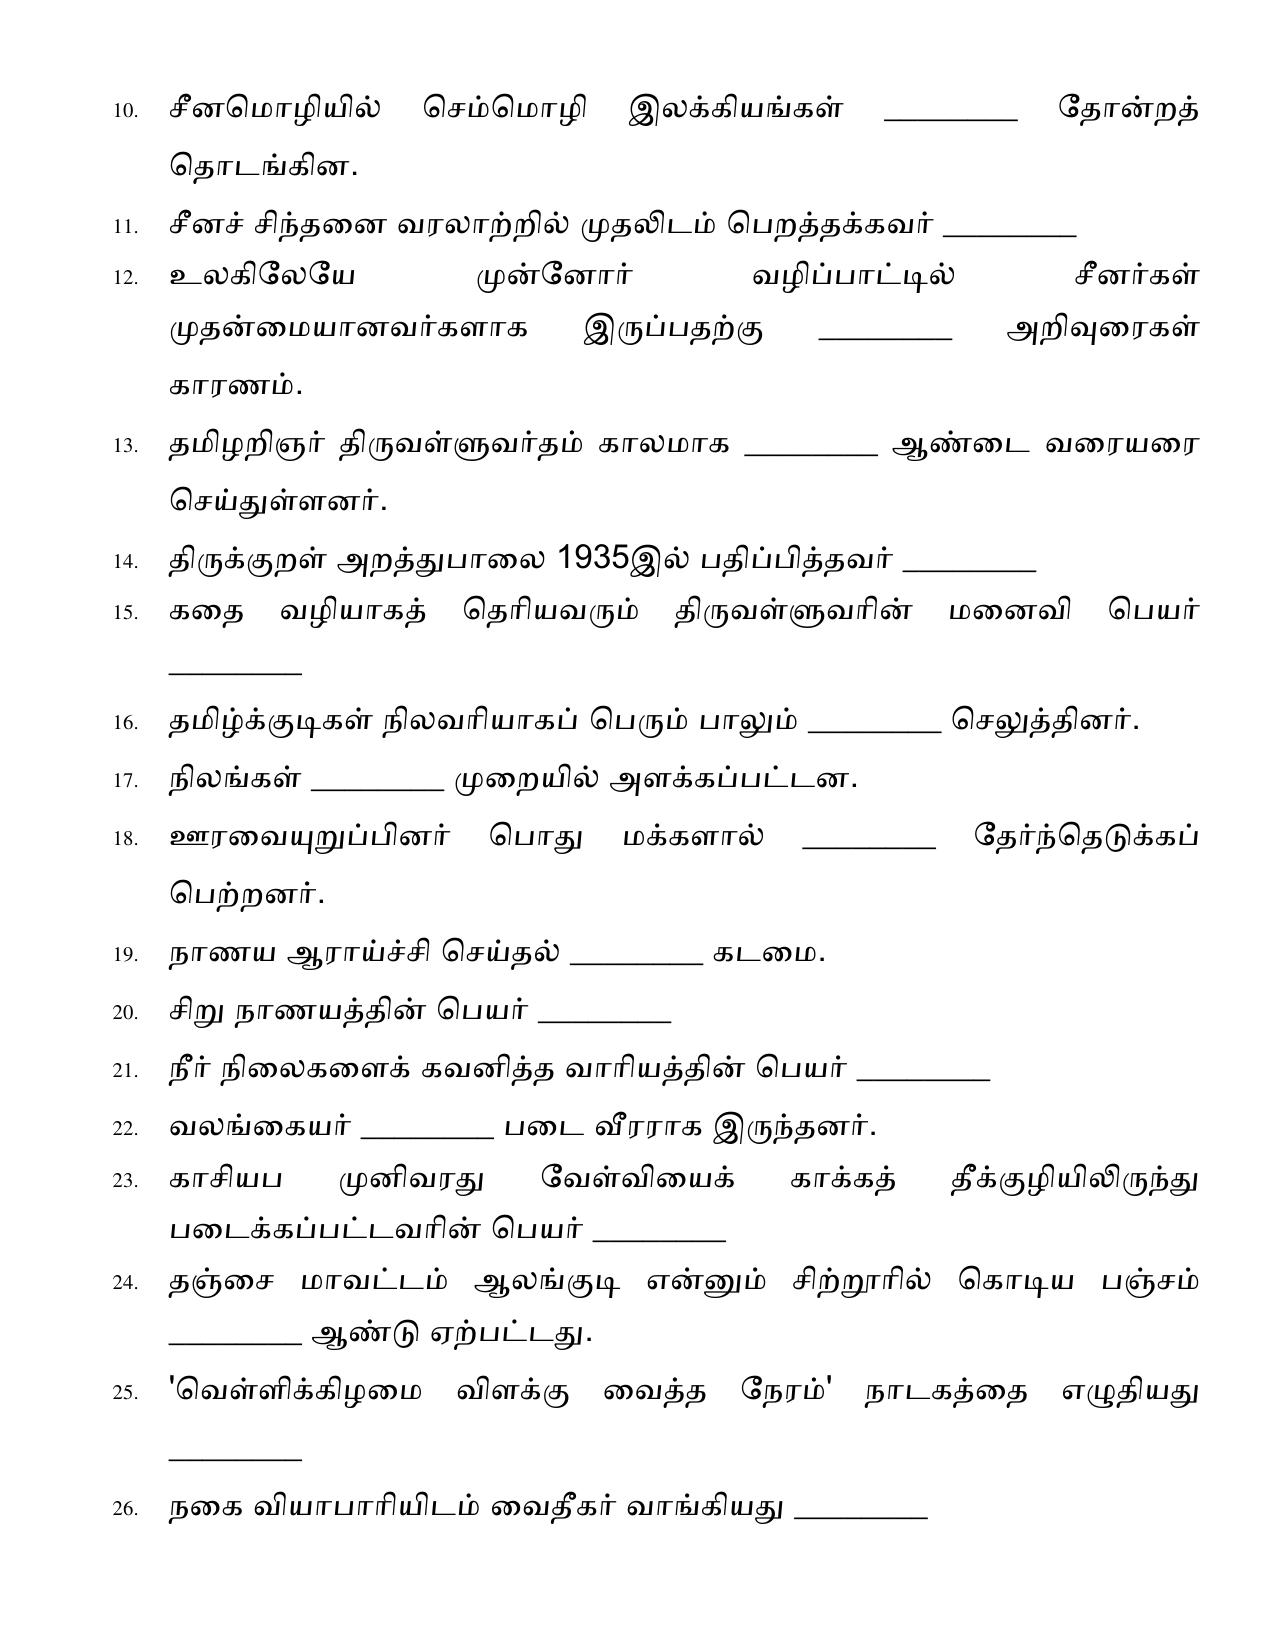 10. சீனமொழியில் செம்மொழி இலக்கியங்கள் ________ தோன்றத்
தொடங்கின.
11. சீனச் சிந்தனை வரலாற்றில் முதலிடம் பெறத்தக்கவர் ________
12. உலகிலேயே முன்னோர் வழிப்பாட்டில் சீனர்கள்
முதன்மையானவர்களாக இருப்பதற்கு ________ அறிவுரைகள்
காரணம்.
13. தமிழறிஞர் திருவள்ளுவர்தம் காலமாக ________ ஆண்டை வரையரை
செய்துள்ளனர்.
14. திருக்குறள் அறத்துபாலை 1935இல் பதிப்பித்தவர் ________
15. கதை வழியாகத் தெரியவரும் திருவள்ளுவரின் மனைவி பெயர்
________
16. தமிழ்க்குடிகள் நிலவரியாகப் பெரும் பாலும் ________ செலுத்தினர்.
17. நிலங்கள் ________ முறையில் அளக்கப்பட்டன.
18. ஊரவையுறுப்பினர் பொது மக்களால் ________ தேர்ந்தெடுக்கப்
பெற்றனர்.
19. நாணய ஆராய்ச்சி செய்தல் ________ கடமை.
20. சிறு நாணயத்தின் பெயர் ________
21. நீர் நிலைகளைக் கவனித்த வாரியத்தின் பெயர் ________
22. வலங்கையர் ________ படை வீரராக இருந்தனர்.
23. காசியப முனிவரது வேள்வியைக் காக்கத் தீக்குழியிலிருந்து
படைக்கப்பட்டவரின் பெயர் ________
24. தஞ்சை மாவட்டம் ஆலங்குடி என்னும் சிற்றூரில் கொடிய பஞ்சம்
________ ஆண்டு ஏற்பட்டது.
25. 'வெள்ளிக்கிழமை விளக்கு வைத்த நேரம்' நாடகத்தை எழுதியது
________
26. நகை வியாபாரியிடம் வைதீகர் வாங்கியது ________